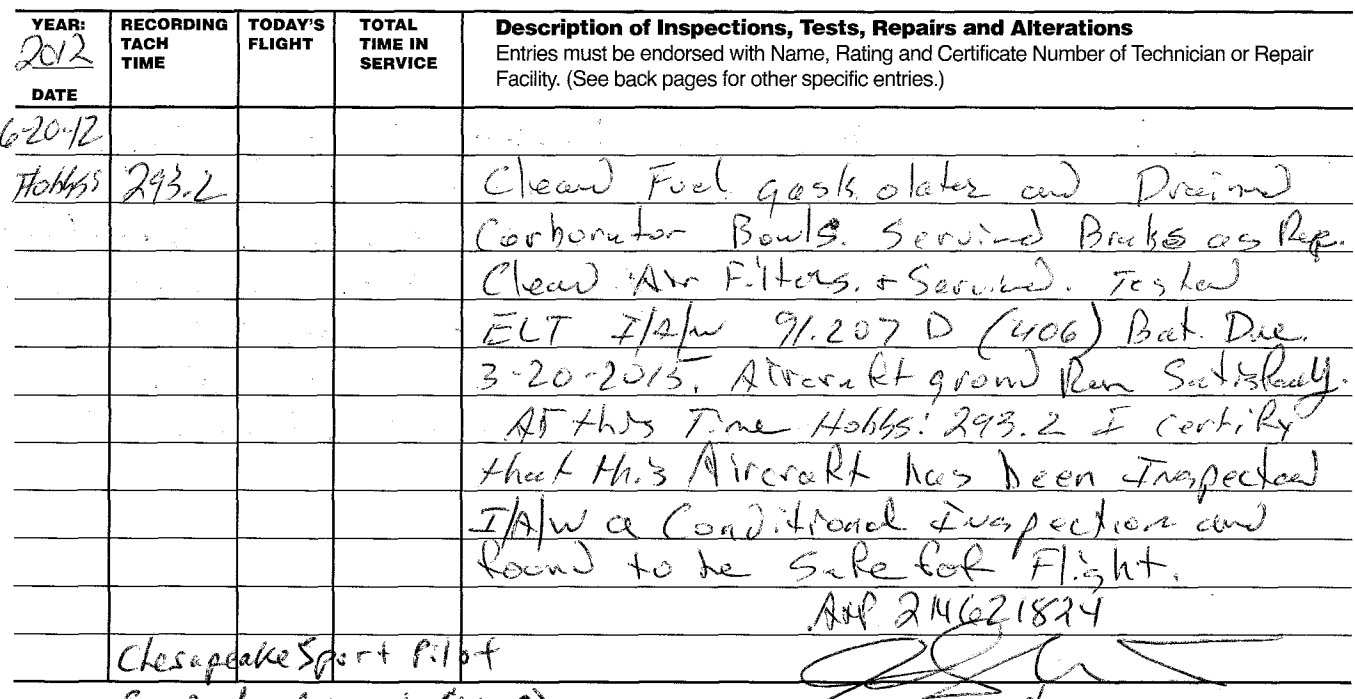 YEAR: 2012
DATE
RECORDING TACH TIME
TODAY'S FLIGHT
TOTAL TIME IN SERVICE
Description of Inspections, Tests, Repairs and Alterations
Entries must be endorsed with Name, Rating and Certificate Number of Technician or Repair
Facility. (See back pages for other specific entries.)
6-20-12
Hobbs 293.2 Cleand Fuel gaskolater and Draind
Carborator Bowls. Servind Brakes as Rep.
Cleand Air Filters. + Servind. Tested
ELT I/A/W 91.207 D (406) Bat. Due.
3-20-2015. Aircraft ground Run
At this Time Hobbs: 293.2 I certify
that this Aircraft has been Inspected
I/A/W a Conditional Inspection and
found to be Safe for Flight.
A&P 214621824
Chesapeake Sport Pilot